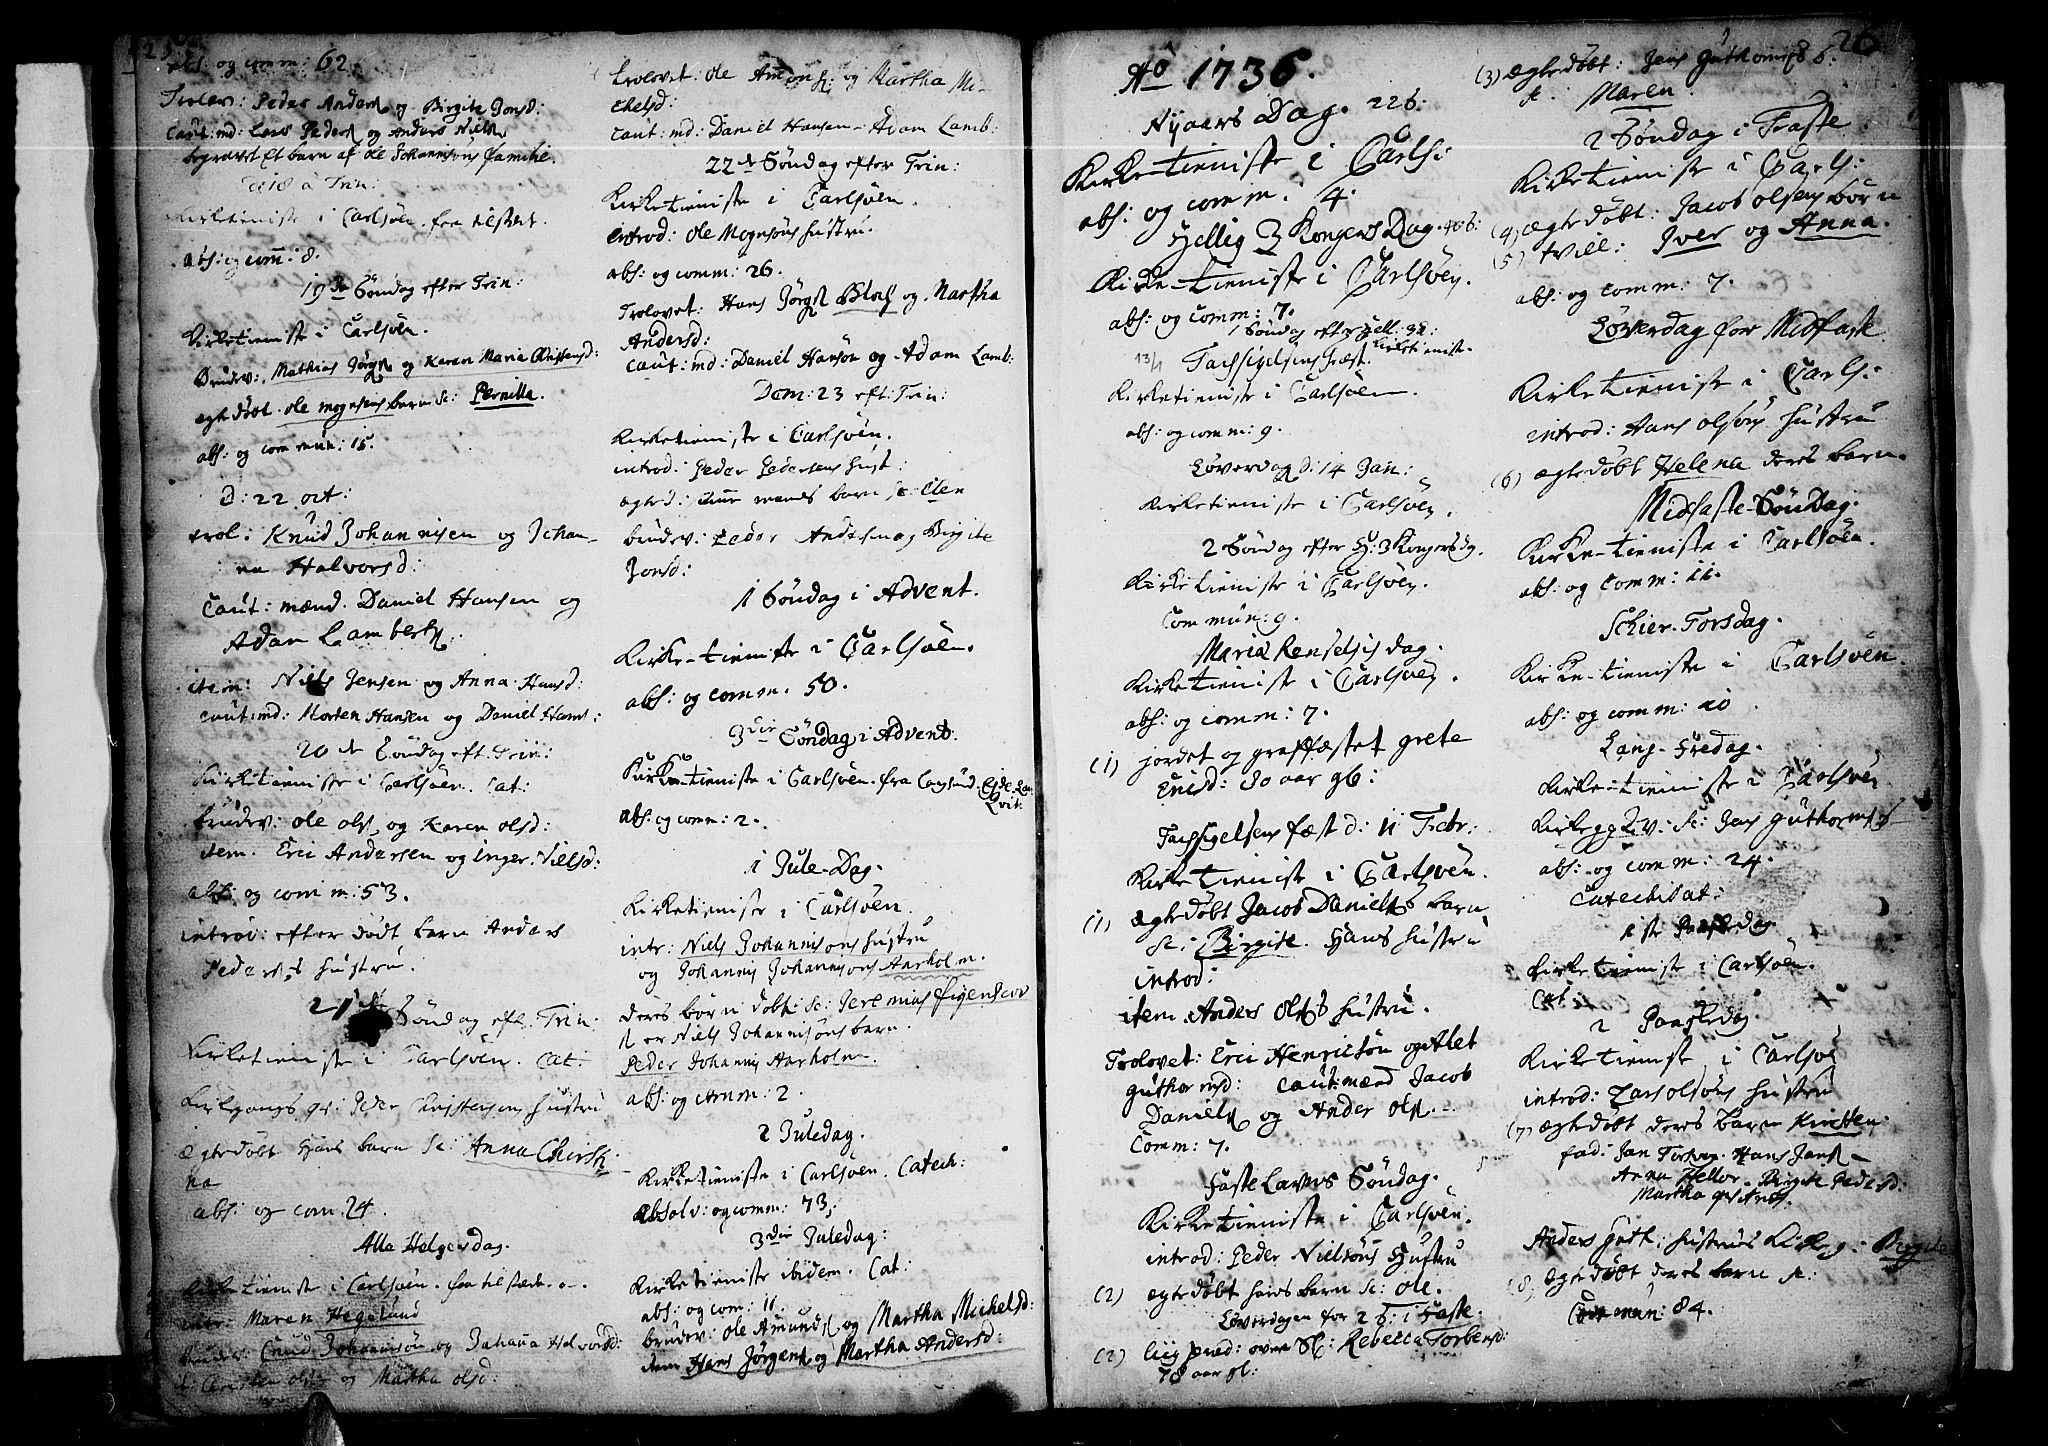 25
abs: og comm: 62.
Trolov: Peder Anders og Birgite Jonsd:
Caut: md: Lars Peders og Anders Niels
begravet et barn af ole Johannisøns familie.
à Trin:
Kirketieniste i Carlsöen. 
abs: og com̄: 8.
19de Søndag efter Trin:
Kirketieniste i Carlsöen.
Brudev: Mathias Jörgs og Karen Maria Christensd:
egte døbt ole mogensens barn sc: Pernilla.
abs: og commun: 15.
D: 22 oct:
trol: Knud Johannisen og Johan-
na Halvorsd:
Caut: mænd. Daniel Hansen og
Adam Lamberts.
item: Niels Jensen og Anna Hansd:
caut: md: Morten Hansen og Daniel Hans:
20de Søndag eft. Trin:
Kirketieniste i Carlsöen. Cat:
brudev: ole ols, og Karen olsd:
item. Eric Andersen og Inger Nielsd:
abs: og comm: 53.
introd: efter dødt barn Anders
Peders hustru.
21de Søndag eft. Trin:
Kirketieniste i Carlsöen. Cat:
Kirkgangs qv: Peder Christensens hustru
Ægtedøbt hans barn sc: Anna Chirsti-
na
abs: og com: 24.
Alle Helgensdag.
Kirketieniste i Carlsöen.
intr: Maren Hegelund
Brudev: Cnud Johannisön og Johanna Halvorsd:
Christen ols og Martha olsd:
trolovet: ole Amons: og Martha Mi-
chelsd:
Caut: md: Daniel Hansen. Adam Lamb:
22de Søndag efter Trin:
Kirketieniste i Carlsöen.
introd: ole Mognsöns hustru.
abs: og comm: 26.
Trolovet: Hans Jörgs Bloch og Martha
Andersd:
Caut: md: Daniel Hansön og Adam Lamb:
Dom: 23 eft: Trin:
Kirketieniste i Carlsöen.
introd: Peder Pedersens hust:
egted: mands barn sc: Elen
brudev: Peder Anders og Birgite
Jonsd:
1 Søndag i Advent.
Kirke-tieniste i Carlsöen.
abs: og comm. 50.
3die Søndag i Advent.
Kirke-tieniste i Carlsöen. fra
abs: og comm: 2.
1 Jule-Dag.
Kirketieniste i Carlsöen.
intr: Niels Johannisöns hustru
og Johannis Johannisöns Aarholm.
deres börn döbt: sc: Jeremias
er Niels Johannisöns barn.
Peder Johannis Aarholm.
abs: og comm: 2.
2 Juledag.
Kirketieniste i Carlsöen. Catech:
Absolv: og comm: 73.
3die Juledag:
Kirketieniste ibidem. Cat:
abs: og com: 11.
brudev: ole Amunds og Martha Michelsd:
item Hans Jörgens og Martha Andersd:
Ao 1736.
Nyaars Dag. 226:
Kirke-tieniste i Carls:
abs: og comm: 4.
Hellig 3 Kongers Dag.
Kirke-tieniste i Carlsöen.
abs: og comm: 7.
1 Søndag efter Hell: 3K:
13/1 Tacksigelsens fæst. Kirketieniste.
Kirketieniste i Carlsöen.
abs: og comm: 9.
Löverdag D: 14 Jan:
Kirketieniste i Carlsöen.
2 Søndag efter H: 3 Kongersdg.
Kirketieniste i Carlsöen.
Commun: 9.
Mariæ Renselsis dag.
Kirketieniste i Carlsöen.
abs: og comm: 7.
(1) jordet og graffæstet grete
Ericd: 80 aar gb:
Tacksigelsens fæst d: 11 Febr:
Kirketieniste i Carlsöen.
(1) ægtedøbt Jacob Daniels barn
sc: Birgite. Hans hustru
introd:
item Anders olss hustru.
Trolovet: Eric Henricsön og Alet
guthormsd: Caut: mænd Jacob
Daniels og Ander ols.
Comm: 7.
Faste Lavns Søndag.
Kirketieniste i Carlsöen.
introd: Peder Nielsöns hustru
(2) egtedøbt hans barn sc: ole.
Löverdagen for 2 S: i Faste.
(2) liigpred: over Sl: Rebecca Torbensd:
78 aar gl:
26
(3) ægtedøbt: Jens guthormss b.
sc: Maren.
2 Søndag i Faste.
Kirketieniste i Carls:
(4) ægtedøbt: Jacob olsens börn
(5) tvill: Iver og Anna.
abs: og comm: 7.
Löverdag for Midfaste.
Kirketieniste i Carls:
introd: Hans olsöns hustru
(6) ægtedøbt Helena deres barn.
Midfaste-Søndag.
Kirke-tieniste i Carlsöen.
abs: og comm: 11.
Schier-Torsdag.
Kirke-tieniste i Carlsöen.
abs: og comm: 10.
Lang-Fredag.
Kirke-tieniste i Carlsöen
Kirkeg: qv: sc: Jens guthorms
abs: og comm: 24.
Catechisat:
1ste Paaskedag
Kirketieniste i Carlsöen.
Cat:
2 Paaskedag.
Kirketieniste i Carlsöe
introd: Lars olsöns hustru
(7) ægtedøbt deres barn Kirsten.
fad: Jan Hans Jans
Anna Birgite Pedersd:
Martha
Anders Guth: hustrus Kirkeg: Birgite
8. ægtedøbt deres barn sc:
Commun: 84.